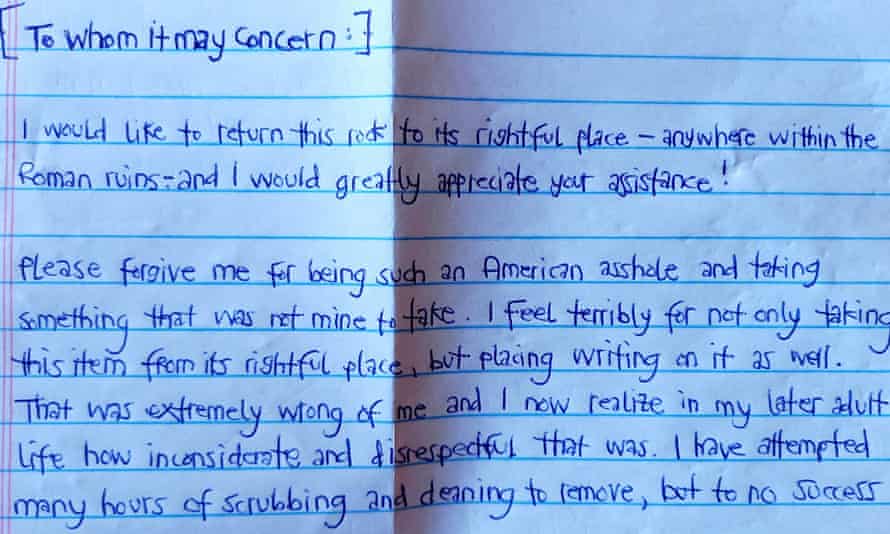 [To whom it may concern:]
I would like to return this rock to its rightful place - anywhere within the
Roman ruins - and I would greatly appreciate your assistance!
Please forgive me for being such an American asshole and taking
something that was not mine to take. I feel terribly for not only taking
this item from its rightful place, but placing writing on it as well.
That was extremely wrong of me and I now realize in my later adult
life how inconsiderate and disrespectful that was. I have attempted
many hours of scrubbing and cleaning to remove, but to no success